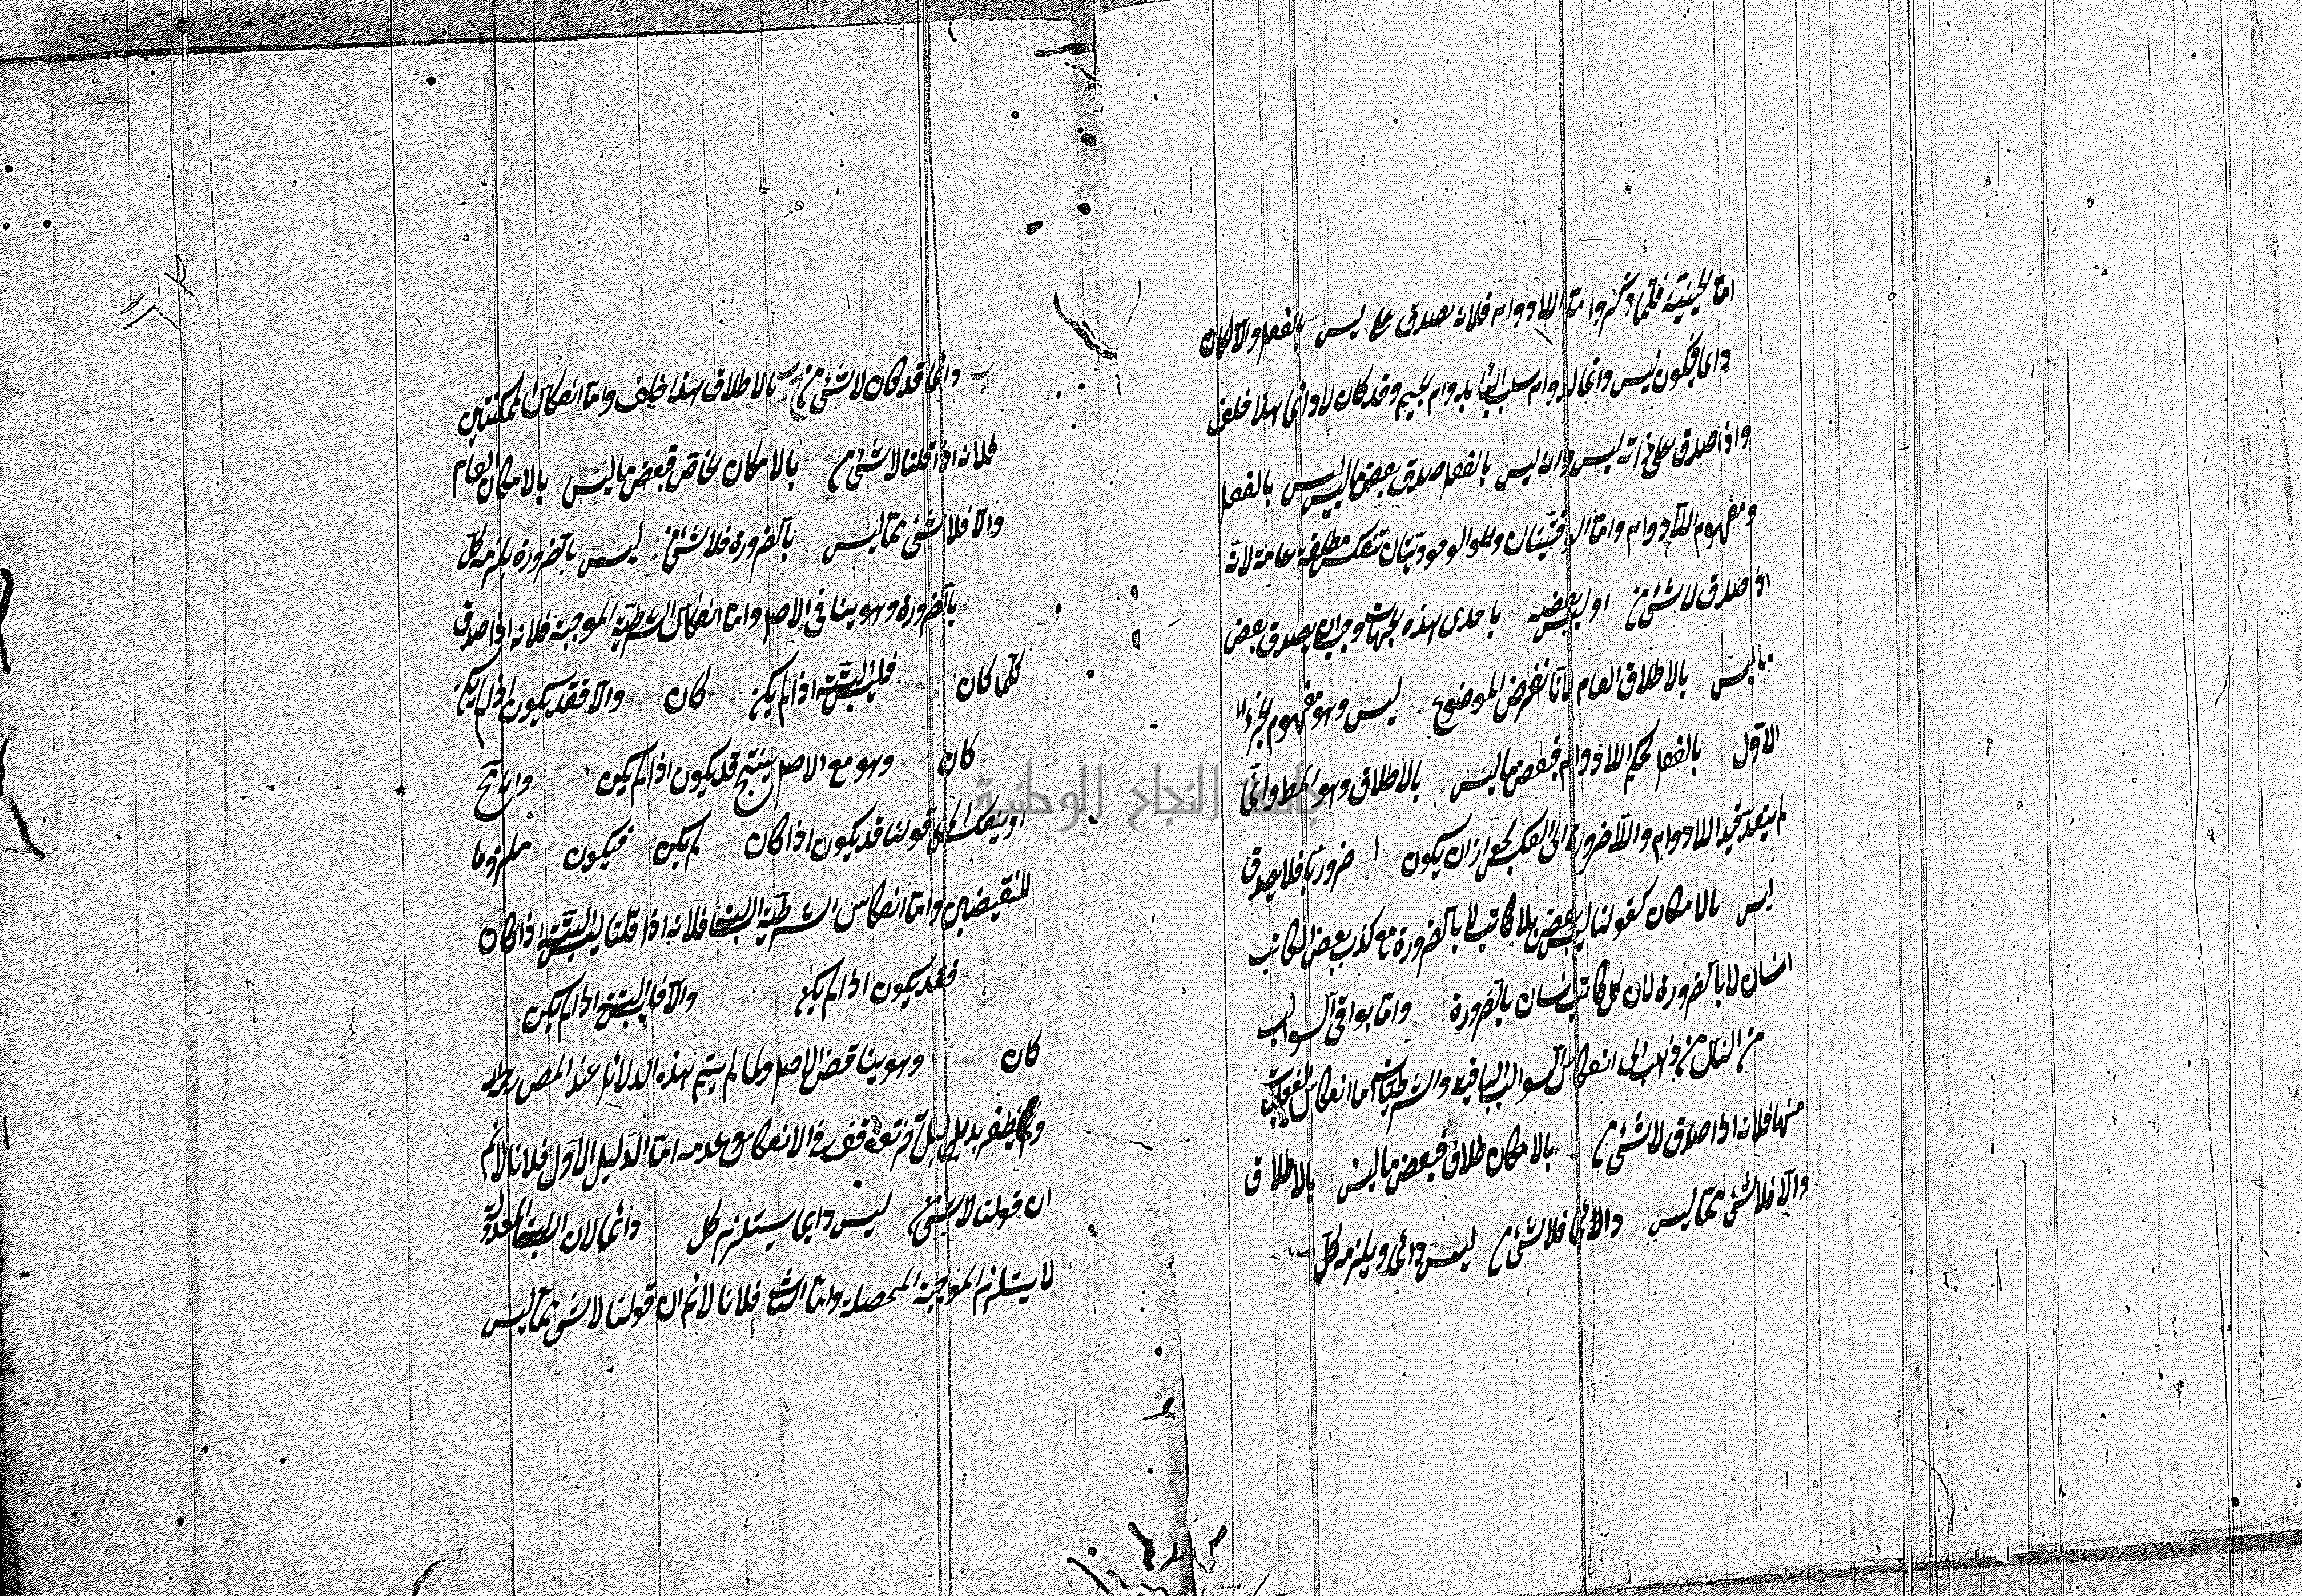 اما الحينية فلما ذكر واما اللادوام فلانه يصدق على ليس بالفعل والا لكان
دائما فيكون ليس دائما لدوام سلب الباء بدوام الجيم وقد كان لا دائما هذا خلف
واذا صدق على ذاته ليس وانه ليس بالفعل صدق بعض ما ليس ليس بالفعل
ومفهوم اللادوام واما الوقتيتان والوجوديتان تنعكس مطلقة عامة لانه
اذا صدق لا شئ من او ليس بعض باحدى هذه الجهات وجب ان يصدق بعض
ما ليس بالاطلاق العام لانا نفرض الموضوع ليس وهو مفهوم الجزء
الاول بالفعل بحكم اللادوام فبعض ما ليس بالاطلاق وهو المط وانما
لم يتعد قيد اللادوام واللاضرورة الى العكس لجواز ان يكون ضروريا فلا يصدق
ليس بالامكان كقولنا ليس بعض بلا كاتب لا بالضرورة مع كذب بعض الكاتب
انسان لا بالضرورة لان كل كاتب انسان بالضرورة واما بواقي السوالب
من الناس من ذهب الى انعكاس السوالب الباقية والشرطيات اما انعكاس
منها فلانه اذا صدق لا شئ من بالامكان فبعض ما ليس بالاطلاق
والا فلا شئ مما ليس دائما فلا شئ من ليس دائما ويلزمه كل
دائما قد كان لا شئ من بالاطلاق هذا خلف واما انعكاس الممكنتين
فلانه اذا قلنا لا شئ من بالامكان الخاص فبعض ما ليس بالامكان العام
والا فلا شئ مما ليس بالضرورة فلا شئ من ليس بالضرورة يلزمه كل
بالضرورة وهو ينافى الاصل واما انعكاس الشرطية الموجبة فلانه اذا صدق
كلما كان فليس البتة اذا لم يكن كان والا فقد يكون اذا لم يكن
كان وهو مع الاصل ينتج قد يكون اذا لم يكن وانه مح
او ينعكس الى قولنا قد يكون اذا كان لم يكن فيكون ملزوما
للنقيضين واما انعكاس الشرطية السالبة فلانه اذا قلنا ليس البتة اذا كان
فقد يكون اذا لم يكن والا فليس البتة اذا لم يكن
كان وهو يناقض الاصل ولما لم يتم هذه الدلائل عند المص
ولم يظفر بدليل آخر توقف فى الانعكاس وعدمه اما الدليل الاول فلانا لا نم
ان قولنا لا شئ من ليس دائما يستلزم كل دائما لان السالبة المعدولة
لا يستلزم الموجبة المحصلة واما الثانى فلانا لا نم ان قولنا لا شئ مما ليس
جامعة النجاح الوطنية